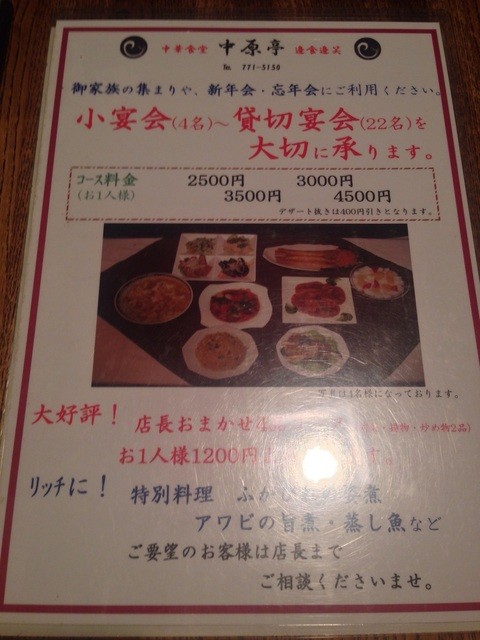 中華食堂 中原亭 連食連笑
TEL 771-5150
御家族の集まりや、新年会・忘年会にご利用ください。
小宴会(4名)～貸切宴会(22名)を
大切に承ります。
コース料金 2500円 3000円
(お1人様) 3500円 4500円
デザート抜きは400円引きとなります。
写真は4名様になっております。
大好評！ 店長おまかせ4品 ・揚物・炒め物2品)
お1人様1200円 ます。
リッチに！ 特別料理 ふかひれの姿煮
アワビの旨煮・蒸し魚など
ご要望のお客様は店長まで
ご相談くださいませ。